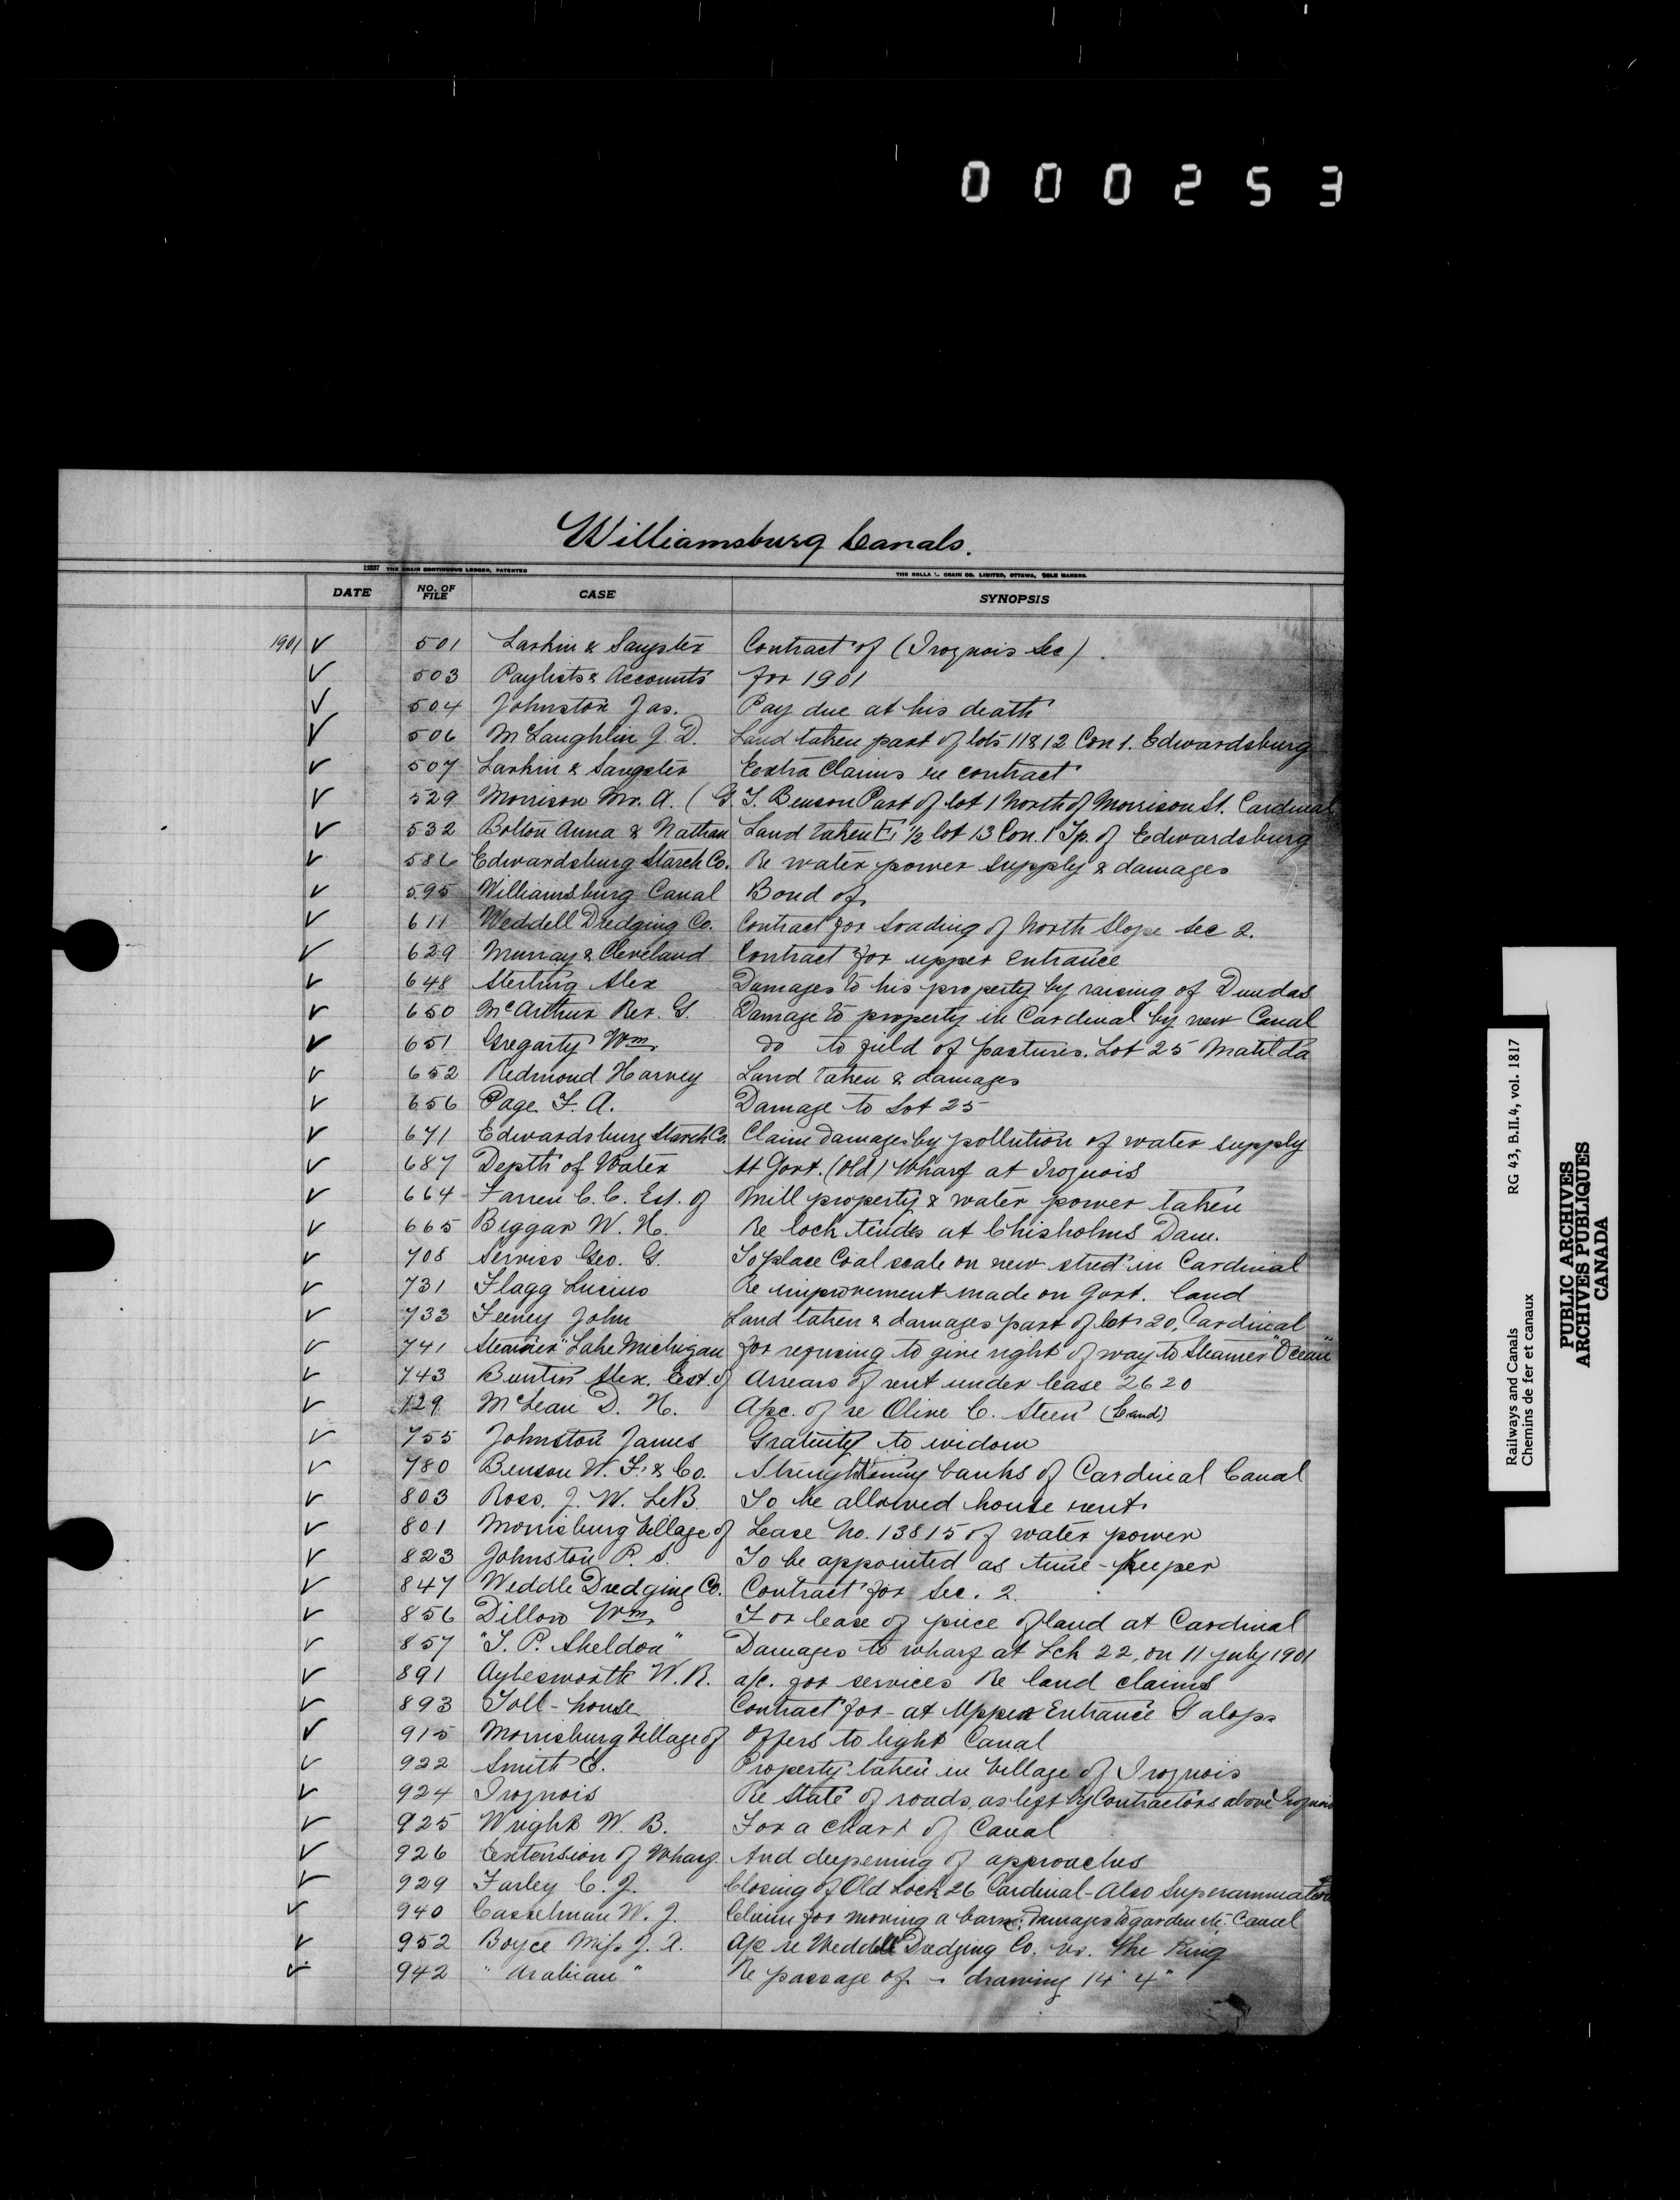 000253
Williamsburg Canals.
12337 THE CRAIN CONTINUOUS LEDGER, PATENTED THE ROLLA L. CRAIN CO. LIMITED, OTTAWA, SOLE MAKERS.
DATE NO. OF FILE CASE SYNOPSIS
1901 ✓ 501 Larkin & Sangster Contract of (Iroquois Sec).
✓ 503 Paylists & Accounts for 1901
✓ 504 Johnston Jas. Pay due at his death
✓ 506 McLaughlin J. D. Land taken part of lots 11&12 Con 1. Edwardsburg
✓ 507 Larkin & Sangster Extra Claims re contract
✓ 529 Morrison Mr. A. (G. T. Benson Part of lot 1 North of Morrison St. Cardinal
✓ 532 Bolton Anna & Nathan Land taken E. ½ lot 13 Con. 1 Tp. of Edwardsburg
✓ 586 Edwardsburg Starch Co. Re water power supply & damages
✓ 595 Williamsburg Canal Bond of
✓ 611 Weddell Dredging Co. Contract for loading of North Slope Sec 2.
✓ 629 Murray & Cleveland Contract for upper Entrance
✓ 648 Sterling Alex Damages to his property by raising of Dundas
✓ 650 McArthur Rev. G. Damage to property in Cardinal by new Canal
✓ 651 Gregarty Wm. do to field of pastures. Lot 25 Matilda
✓ 652 Redmond Harvey Land taken & damages
✓ 656 Page F. A. Damage to Lot 25
✓ 671 Edwardsburg Starch Co. Claim damages by pollution of water supply
✓ 687 Depth of Water At Govt. (Old) Wharf at Iroquois
✓ 664 Farren C. C. Est. of Mill property & water power taken
✓ 665 Biggar W. H. Re lock tender at Chisholms Dam.
✓ 708 Serviss Geo. G. To place Coal scale on new street in Cardinal
✓ 731 Flagg Lucius Re improvement made on Govt. land
✓ 733 Feeney John Land taken & damages part of lot 20, Cardinal
✓ 741 Steamer "Lake Michigan For refusing to give right of way to Steamer "Ocean"
✓ 743 Buntin Alex. Est. of Arrears of rent under lease 2620
✓ 129 McLean D. H. A/c. of re Olive C. Steen (Land)
✓ 755 Johnston James Gratuity to widow
✓ 780 Benson W. T. & Co. Strengthening banks of Cardinal Canal
✓ 803 Ross, J. W. LeB. To be allowed house rent.
✓ 801 Morrisburg Village of Lease No. 13815 of water power
✓ 823 Johnston P. S. To be appointed as time-keeper
✓ 847 Weddle Dredging Co. Contract for Sec. 2.
✓ 856 Dillow Wm. For lease of piece of land at Cardinal
✓ 857 "T. P. Sheldon" Damages to wharf at Lck 22, on 11 July 1901
✓ 891 Aylesworth W. R. a/c. for services Re land claims
✓ 893 Toll-house Contract for - at Upper Entrance Galops
✓ 915 Morrisburg Village of Offers to light Canal
✓ 922 Smith E. Property taken in Village of Iroquois
✓ 924 Iroquois Re State of roads, as left by Contractors above Iroquois
✓ 925 Wright W. B. For a Chart of Canal
✓ 926 Extension of Wharf And deepening of approaches
✓ 929 Farley C. J. Closing of Old Lock 26 Cardinal - Also Superannuation
✓ 940 Casselman W. J. Claim for moving a barn; damages to garden etc. Canal
✓ 952 Boyce Miss J. A. A/c re Weddell Dredging Co. vs. The King
✓ 942 "Arabian" Re passage of - drawing 14' 4"
Railways and Canals RG 43, B.II.4, vol. 1817
Chemins de fer et canaux
PUBLIC ARCHIVES
ARCHIVES PUBLIQUES
CANADA